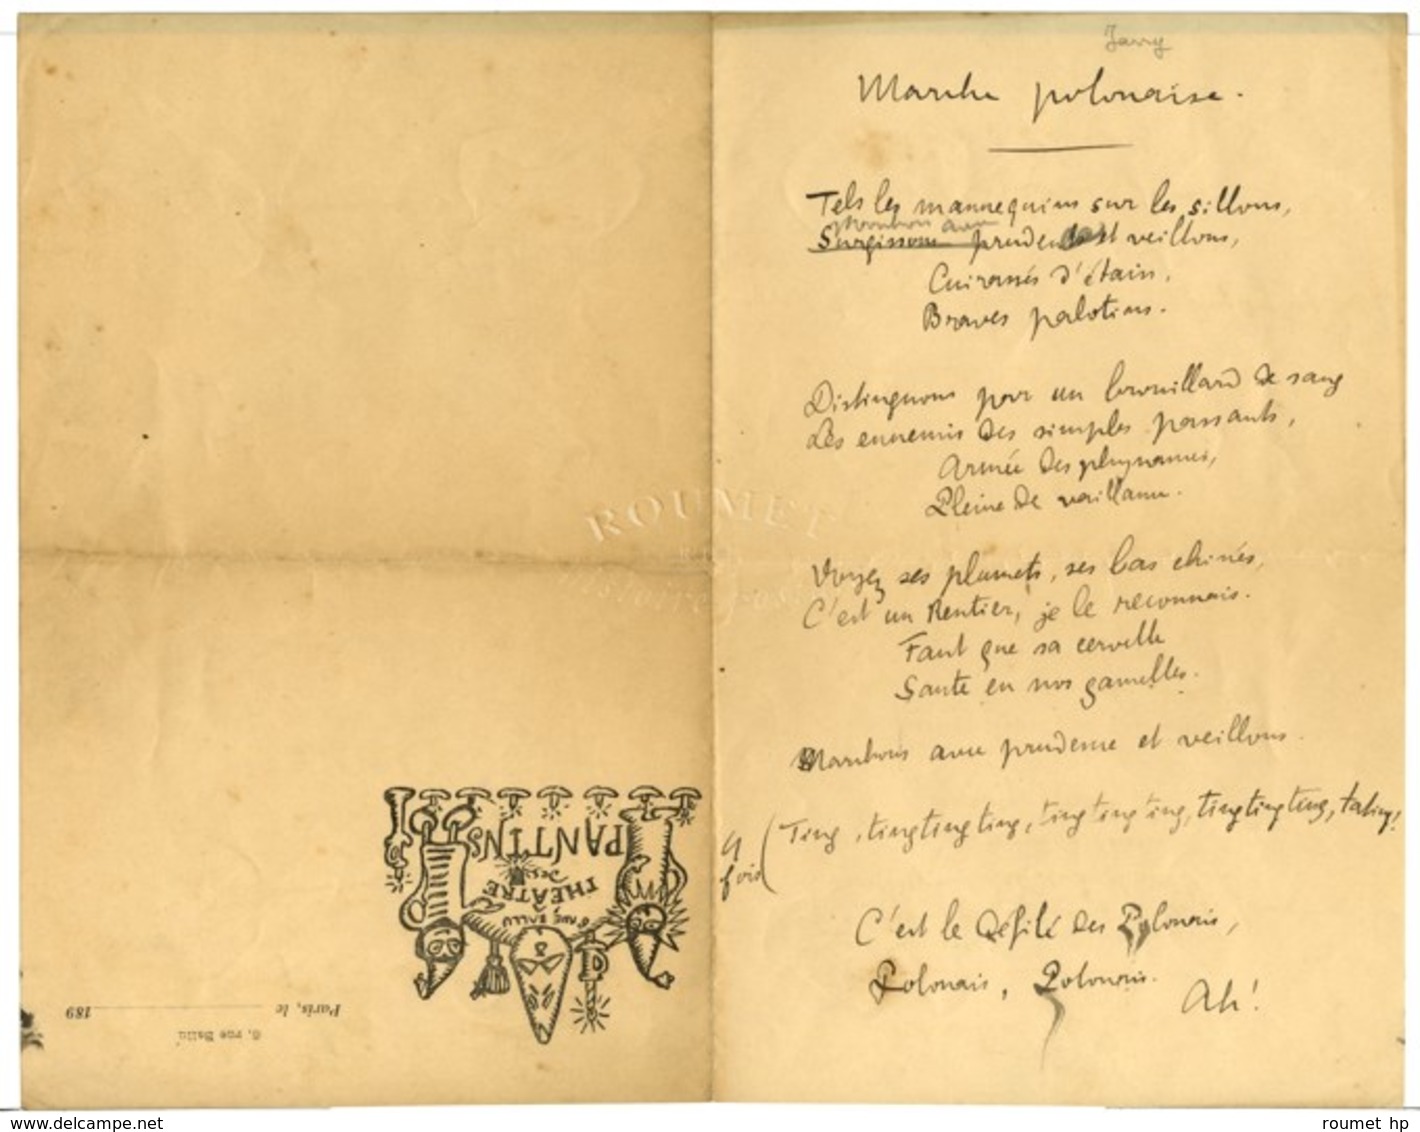 Jarry
Marche polonaise.
Tels les mannequins sur les sillons,
Marchons avec
Surgissons prudence et veillons,
Cuirassés d'étain,
Braves palotins.
Distinguons par un brouillard de sang
Les ennemis des simples passants,
Armée des phynances,
Pleine de vaillance.
Voyez ses plumets, ses bas chinés,
C'est un Rentier, je le reconnais.
Faut que sa cervelle
Saute en nos gamelles.
Marchons avec prudence et veillons.
4 fois ( Ting, tingtingting, tingtingting, tingtingting, tating!
C'est le défilé des Polonais,
Polonais, Polonais.
Ah!
ROUMET
HISTOIRE POSTALE
PANTINS
DES
THÉATRE
6 RUE BALLU
Paris, le 189
6, rue Ballu
www.delcampe.net
roumet hp